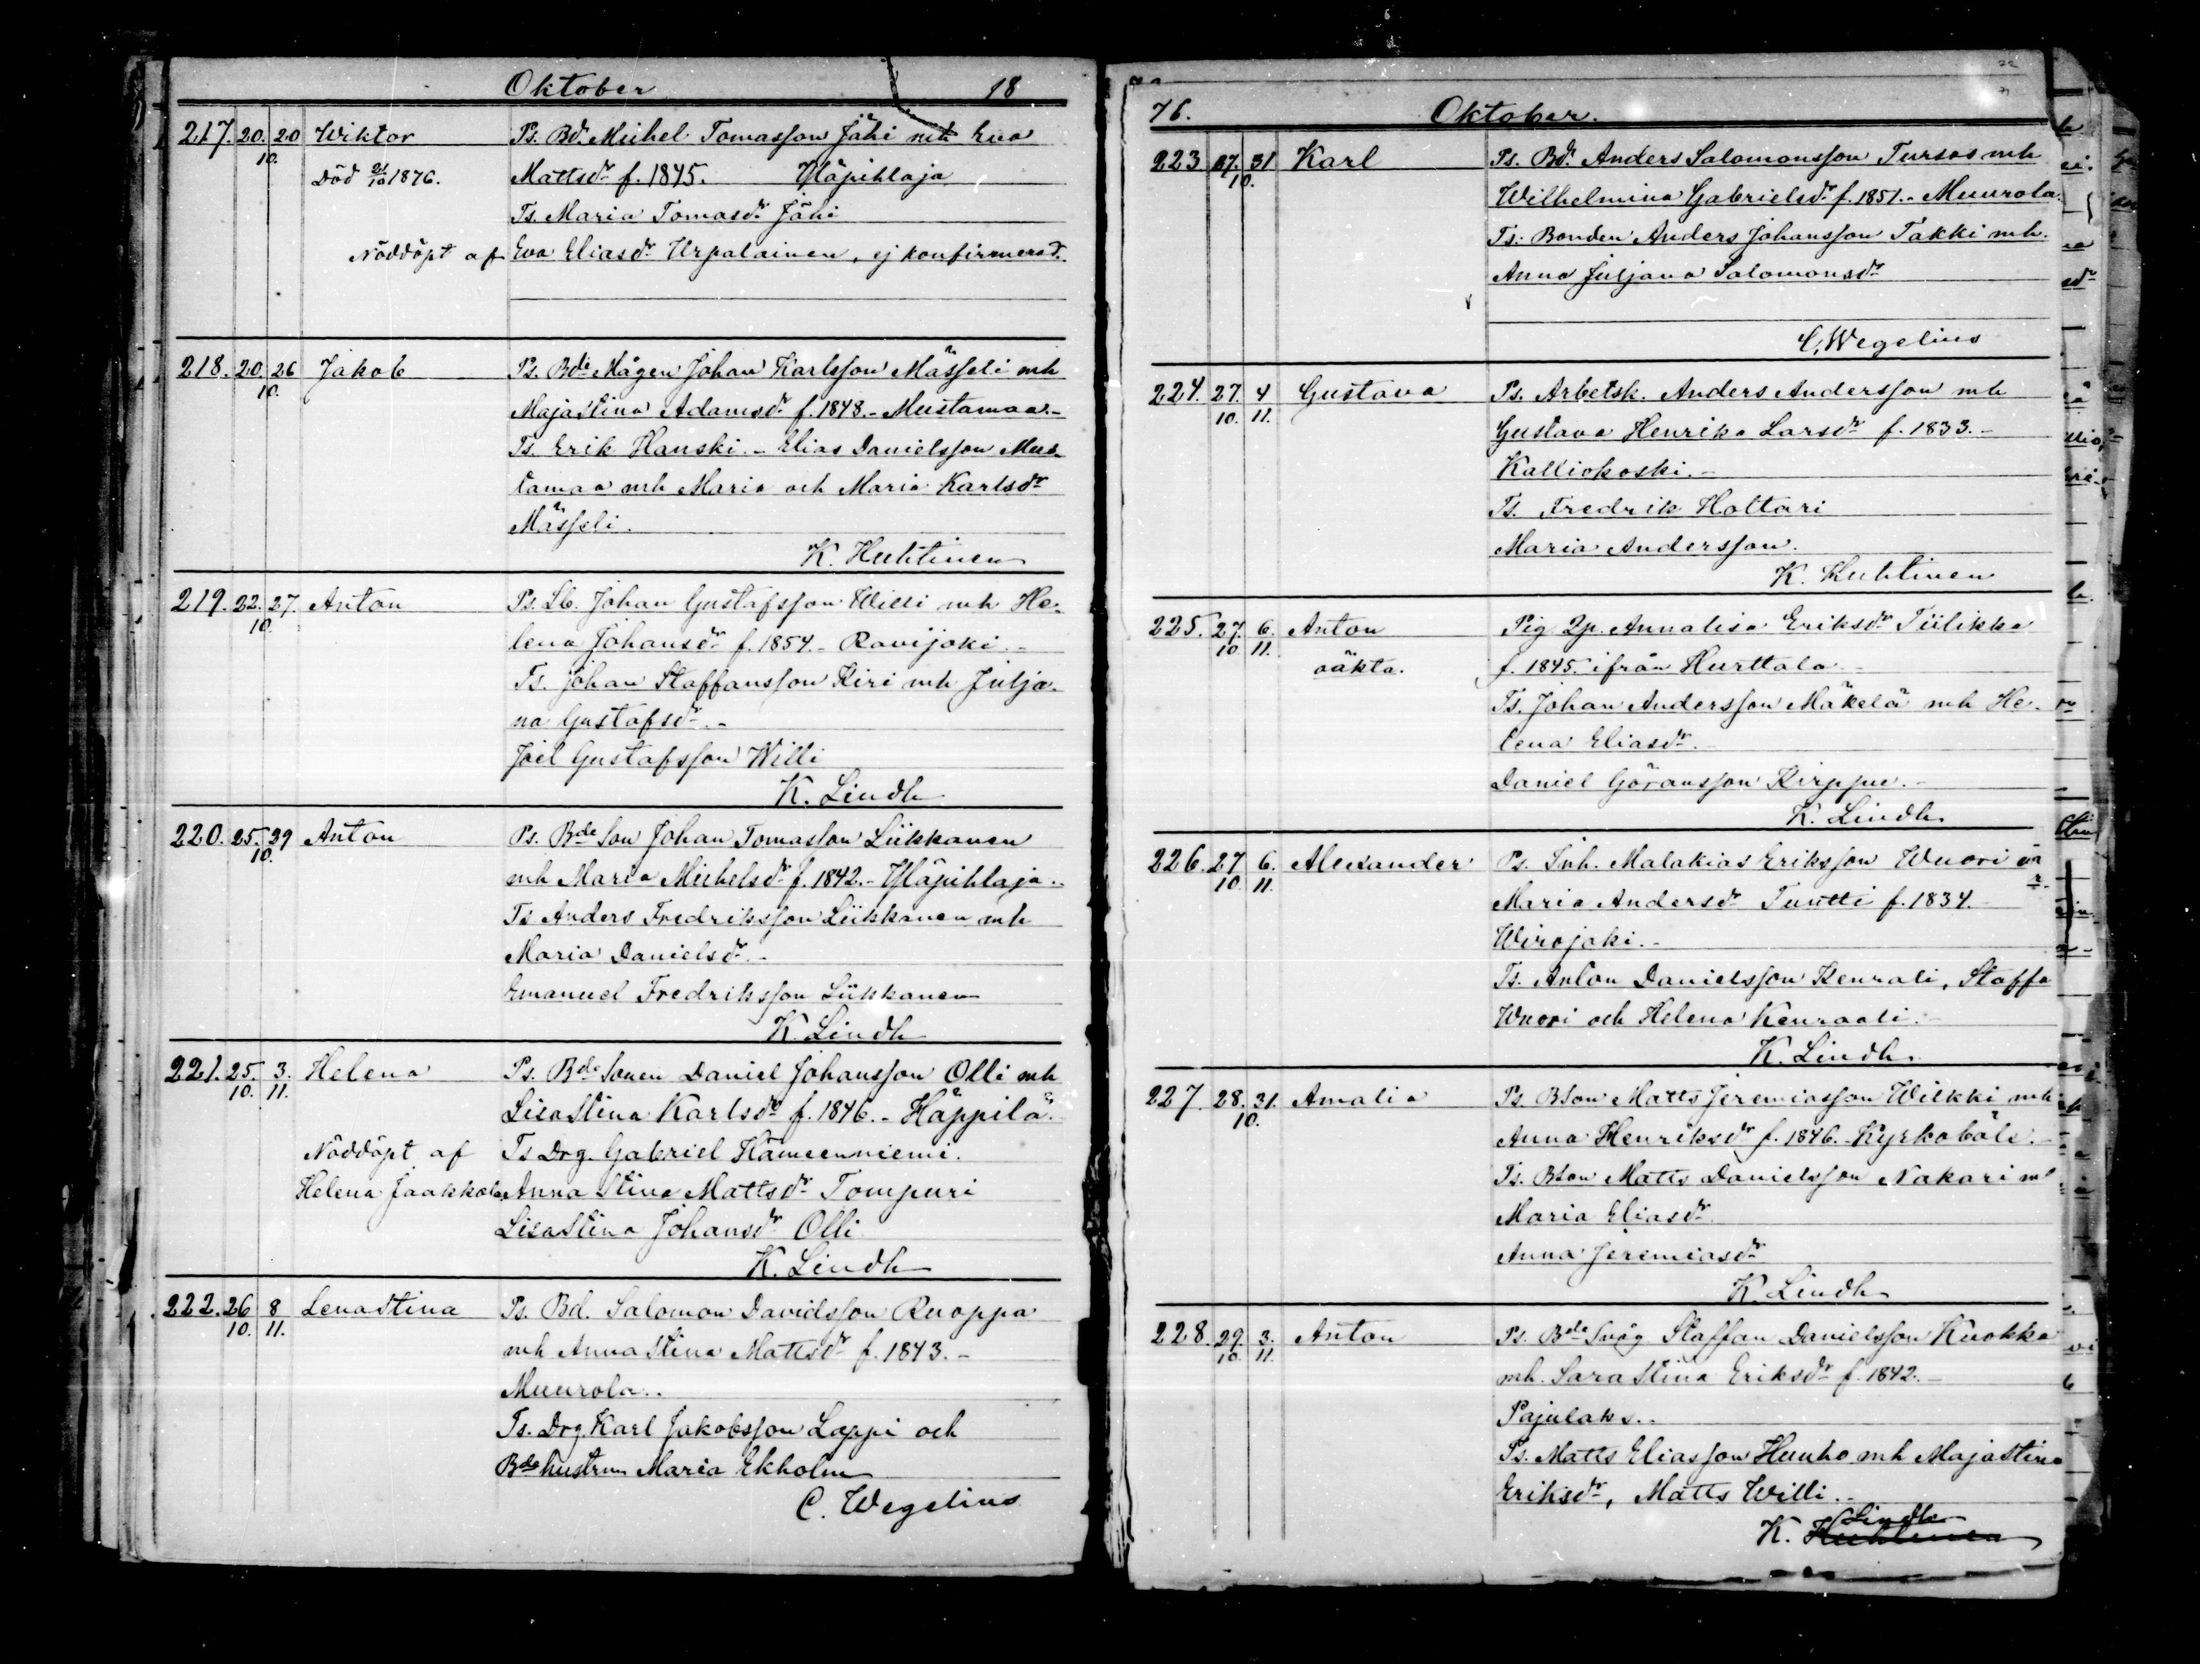 Oktober 18
217. 20. 20 Wiktor Ps. Bd. Michel Tomasson Jähi mh Eva
10.
Död 21/10 1876. Mattsdr f. 1845. Yläpihlaja
Ts. Maria Tomasdr Jähi
Nöddöpt af Eva Eliasdr Urpalainen, ej konfirmerad.
218. 20. 26 Jakob Ps. Bde Mågen Johan Karlsson Mässeli mh
10.
Majastina Adamsdr f. 1848. - Mustamaa. -
Ts. Erik Hanski. - Elias Danielsson Mus-
tamaa mh Maria och Maria Karlsdr
Mässeli.
K. Huhtinen
219. 22. 27. Anton Ps. Lb. Johan Gustafsson Willi mh He-
10.
lena Johansdr f. 1854 - Ravijoki. -
Ts. Johan Staffansson Kiri mh Julja-
na Gustafsdr. -
Joel Gustafsson Willi
K. Lindh
220. 25. 29 Anton Ps. Bde Son Johan Tomasson Liikkanen
10.
mh Maria Michelsdr f. 1842. - Yläpihlaja. -
Ts Anders Fredriksson Liikkanen mh
Maria Danielsdr. -
Emanuel Fredriksson Liikkanen
K. Lindh
221. 25. 3. Helena Ps. Bde Sonen Daniel Johansson Olli mh
10. 11.
Lisastina Karlsdr f. 1846. - Häppilä.
Nöddöpt af Ts Drg. Gabriel Hämeenniemi.
Helena Jaakkola Anna Stina Mattsdr Tompuri
Lisastina Johansdr Olli
K. Lindh
222. 26 8 Lenastina Ps. Bd. Salomon Davidsson Ruoppa
10. 11.
mh Anna Stina Mattsdr f. 1843. -
Muurola. .
Ts. Drg. Karl Jakobsson Lappi och
Bdehustrun Maria Ekholm
C. Wegelius
76. Oktober.
223. 27. 31 Karl Ps. Bd. Anders Salomonsson Tursas mh
10.
Wilhelmina Gabrielsdr f. 1851. - Muurola.
Ts. Bonden Anders Johansson Takki mh.
Anna Juljana Salomonsdr
C. Wegelius
224. 27. 4 Gustava Ps. Arbetsk. Anders Andersson mh
10. 11.
Gustava Henrika Larsdr f. 1833. -
Kalliokoski. -
Ts. Fredrik Holtari
Maria Andersson.
K. Huhtinen
225. 27. 6. Anton Pig Qp. Annalisa Eriksdr Tiilikka
10. 11.
oäkta. f. 1845. ifrån Hurttala. -
Ts. Johan Andersson Mäkelä mh He-
lena Eliasdr.
Daniel Göransson Kirppu. -
K. Lindh
226. 27 6. Alexander Ps. Inh. Malakias Eriksson Wuori
10. 11.
Maria Andersdr Tuutti f. 1834.
Wirojoki. -
Ts. Anton Danielsson Kenrali, Staffa
Wuori och Helena Kenraali. -
K. Lindh
227. 28. 31. Amalia Ps. BSon Matts Jeremiasson Wilkki mh
10.
Anna Henriksdr f. 1846. Kyrkoböle. -
Ts. BSon Matts Danielsson Nakari m
Maria Eliasdr
Anna Jeremiasdr
K. Lindh
228. 29. 3. Anton Ps. Bde Svåg Staffan Danielsson Kuokka
10. 11.
mh. Sara Stina Eriksdr f. 1842. -
Pajulaks. .
Ts. Matts Eliasson Huuho mh Majastina
Eriksdr, Matts Willi. -
Lindh
K. Huhtinen